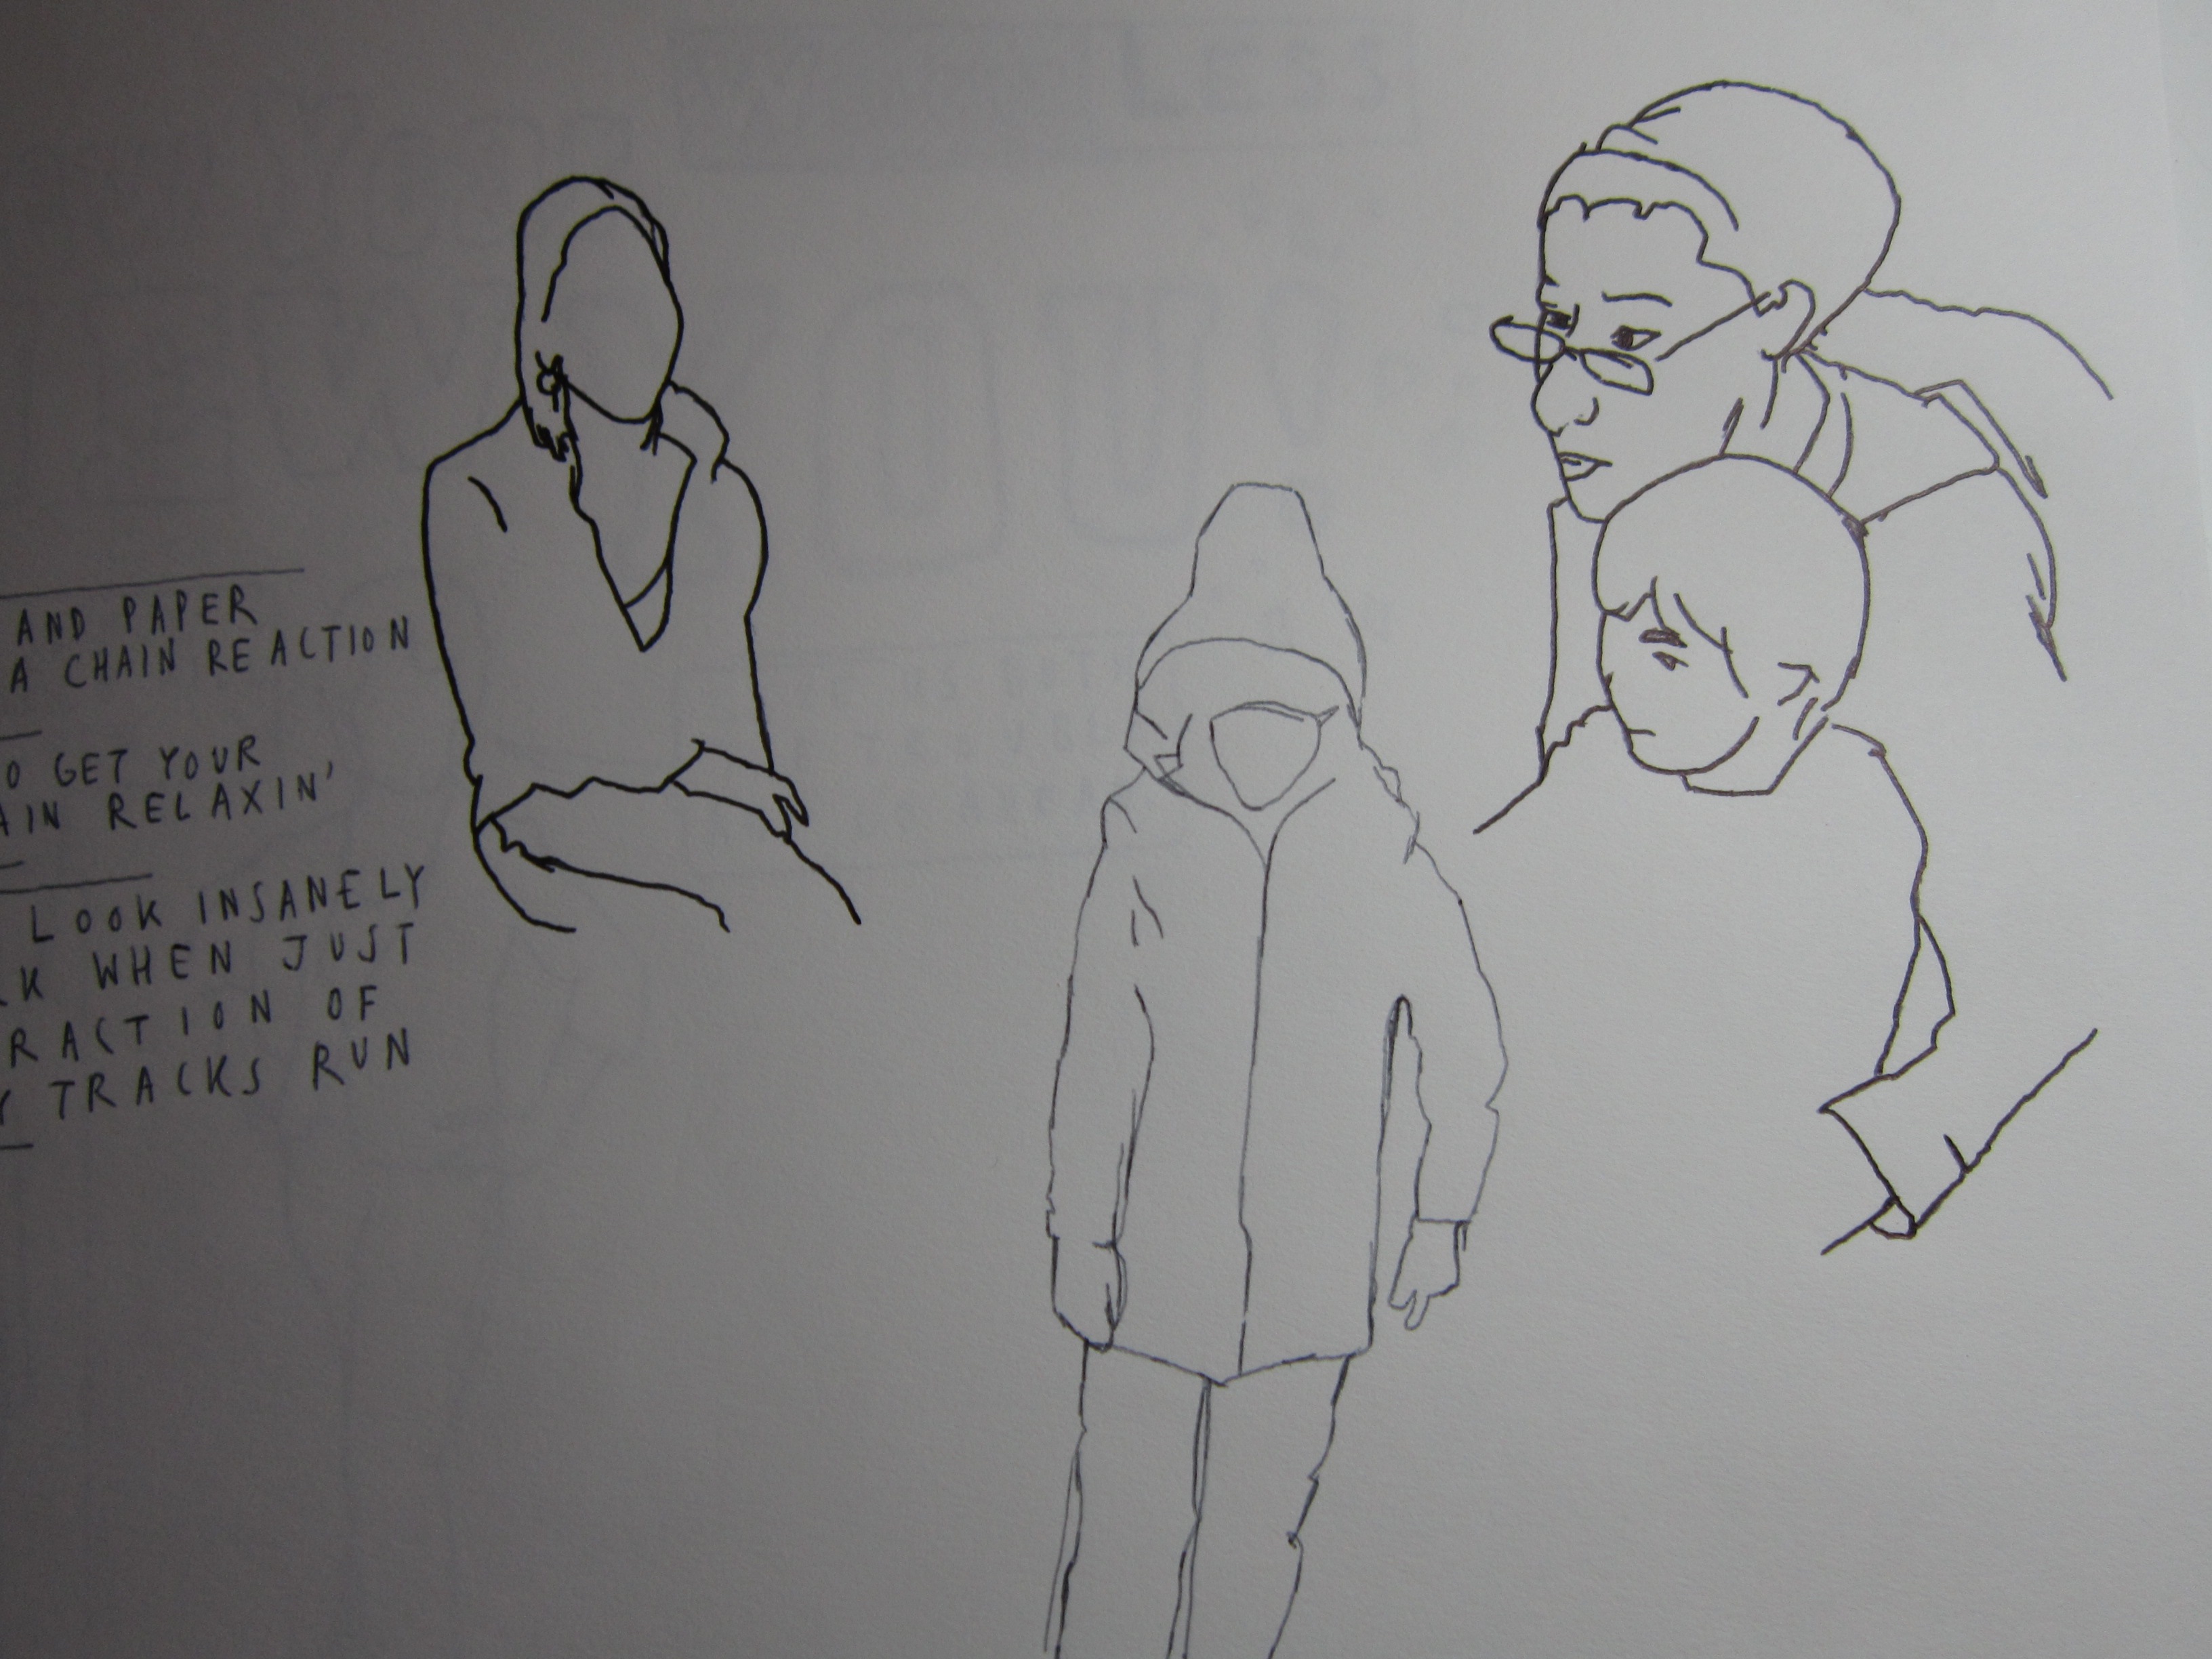 AND PAPER
A CHAIN REACTION
O GET YOUR
AIN RELAXIN'
LOOK INSANELY
K WHEN JUST
RACTION OF
Y TRACKS RUN